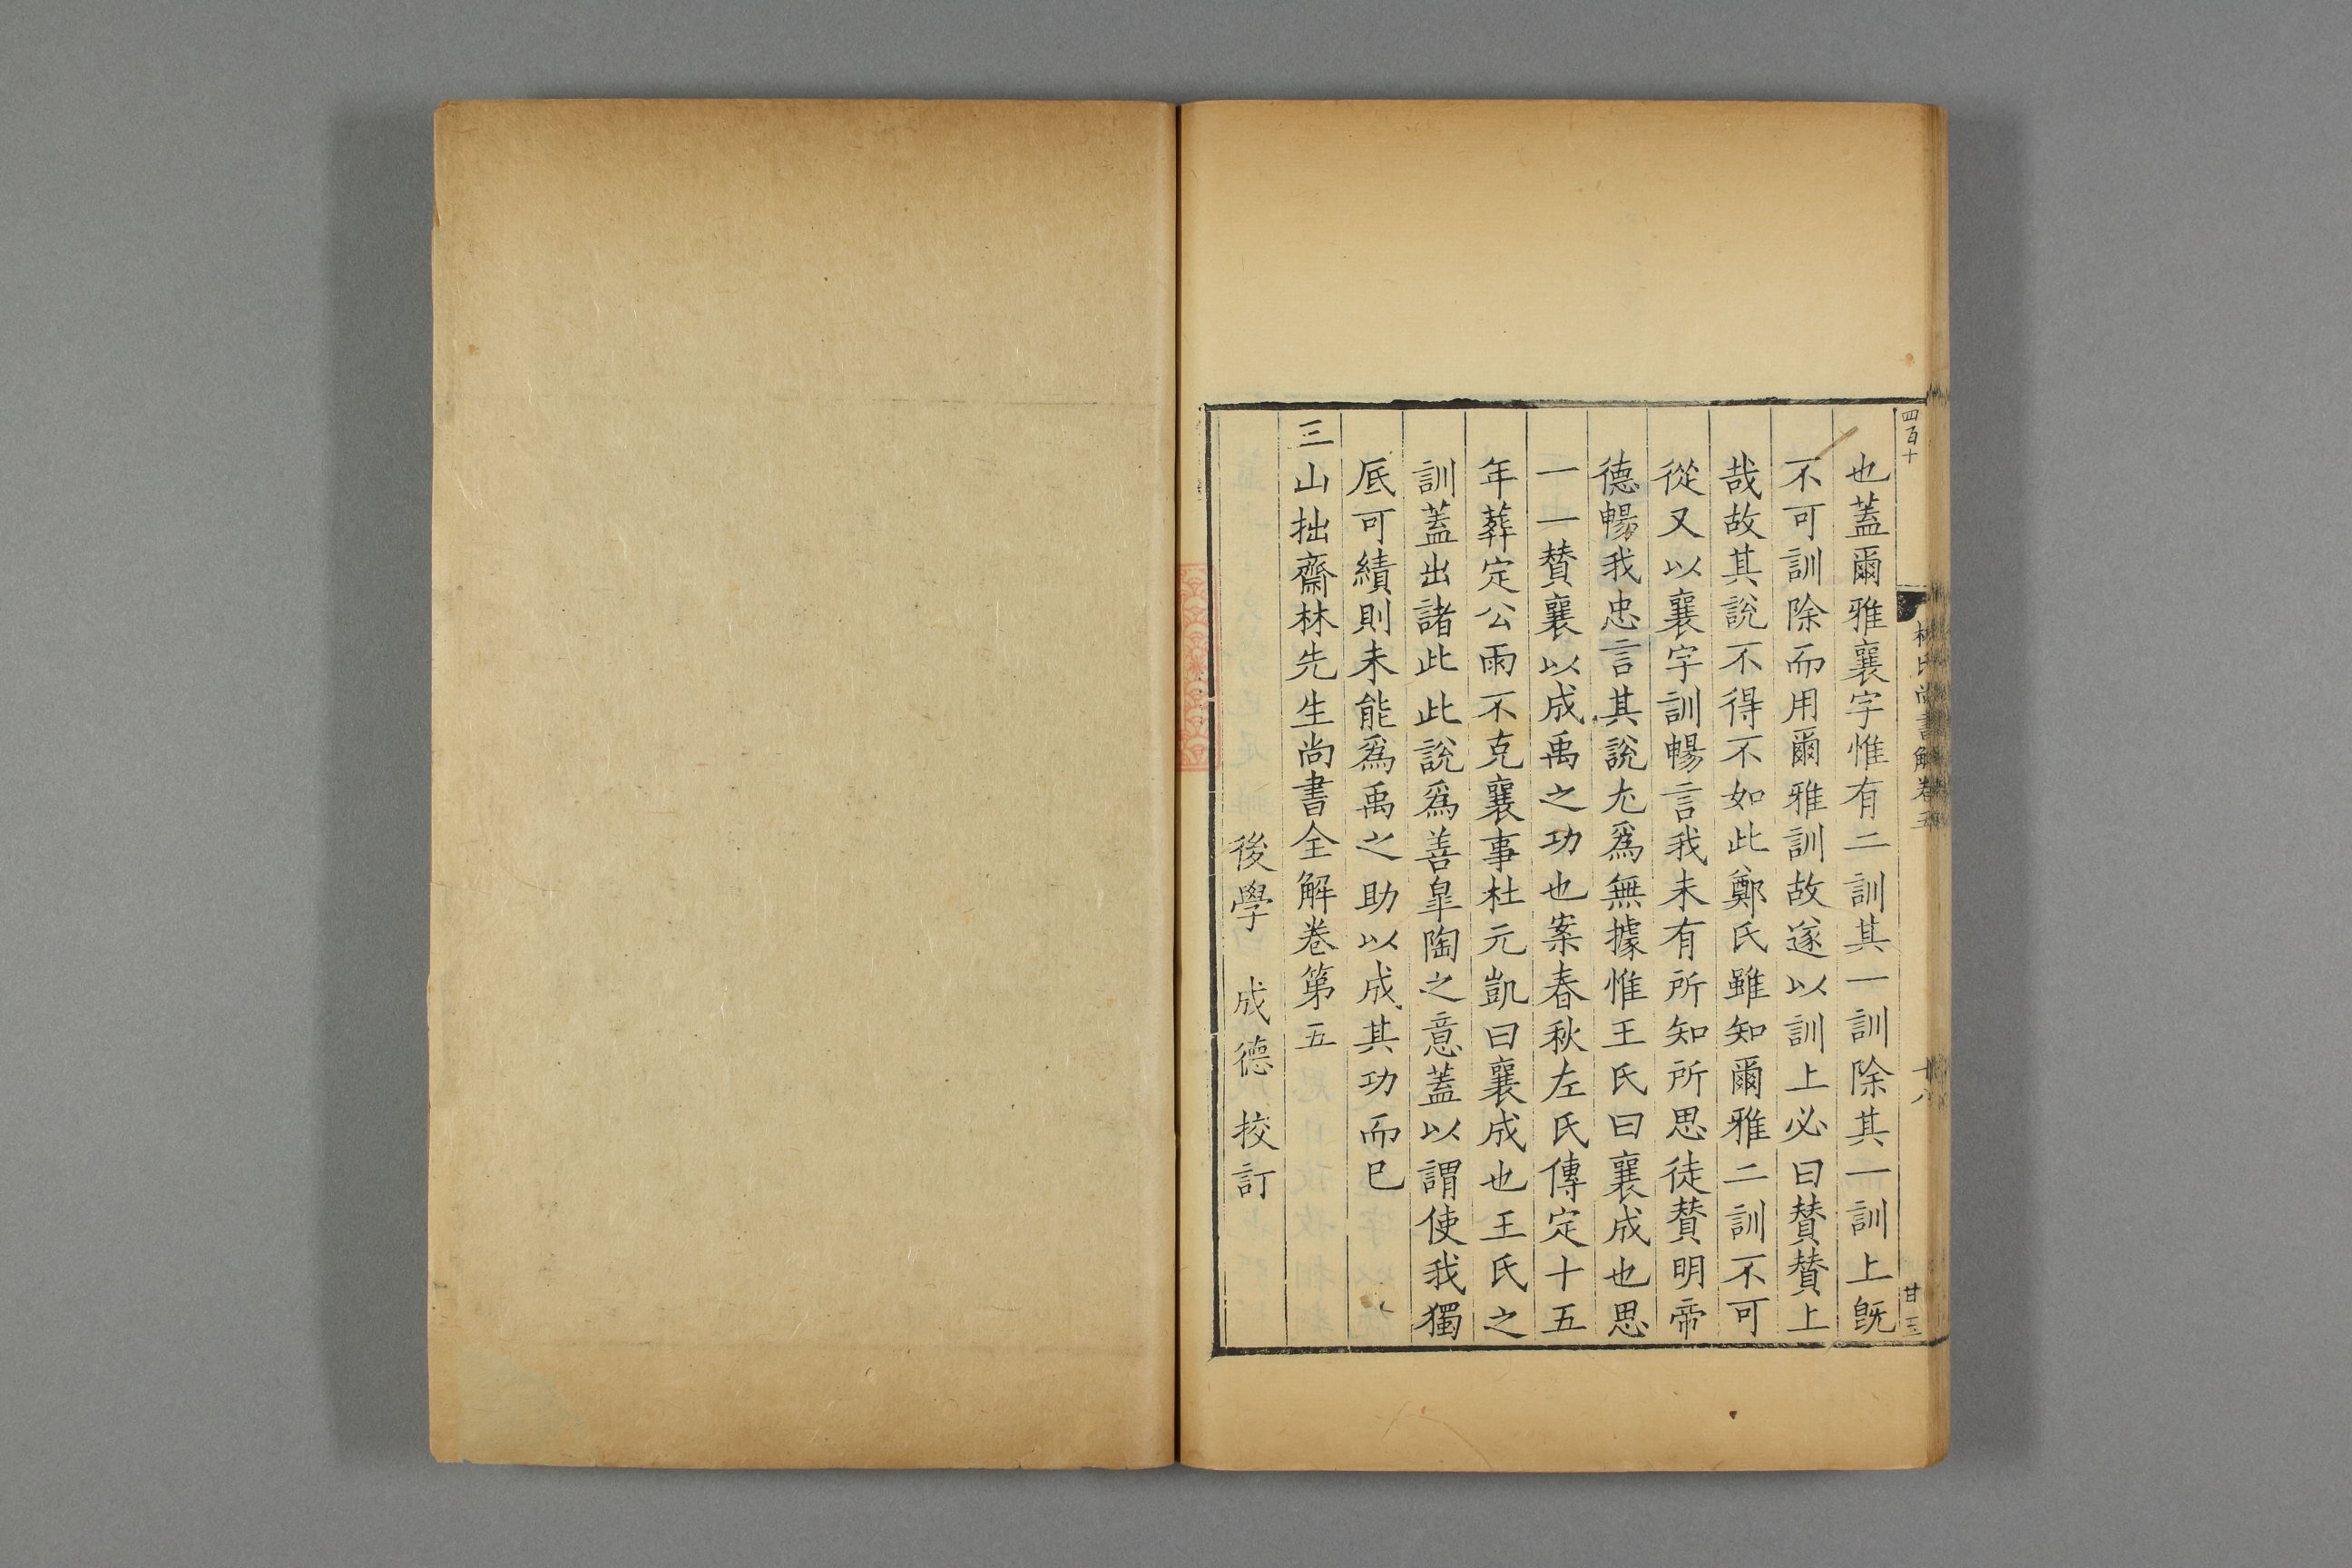 四百十
林氏尚書解卷五
十八
甘
三
也蓋爾雅襄字惟有二訓其一訓除其一訓上既
不可訓除而用爾雅訓故遂以訓上必曰賛賛上
哉故其說不得不如此鄭氏雖知爾雅二訓不可
從又以襄字訓暢言我未有所知所思徒賛明帝
德暢我忠言其說尤爲無據惟王氏曰襄成也思
一一賛襄以成禹之功也案春秋左氏傳定十五
年葬定公雨不克襄事杜元凱曰襄成也王氏之
訓蓋出諸此此說爲善臯陶之意蓋以謂使我獨
底可績則未能爲禹之助以成其功而已
三山拙齋林先生尚書全解卷第五
後學 成德 挍訂